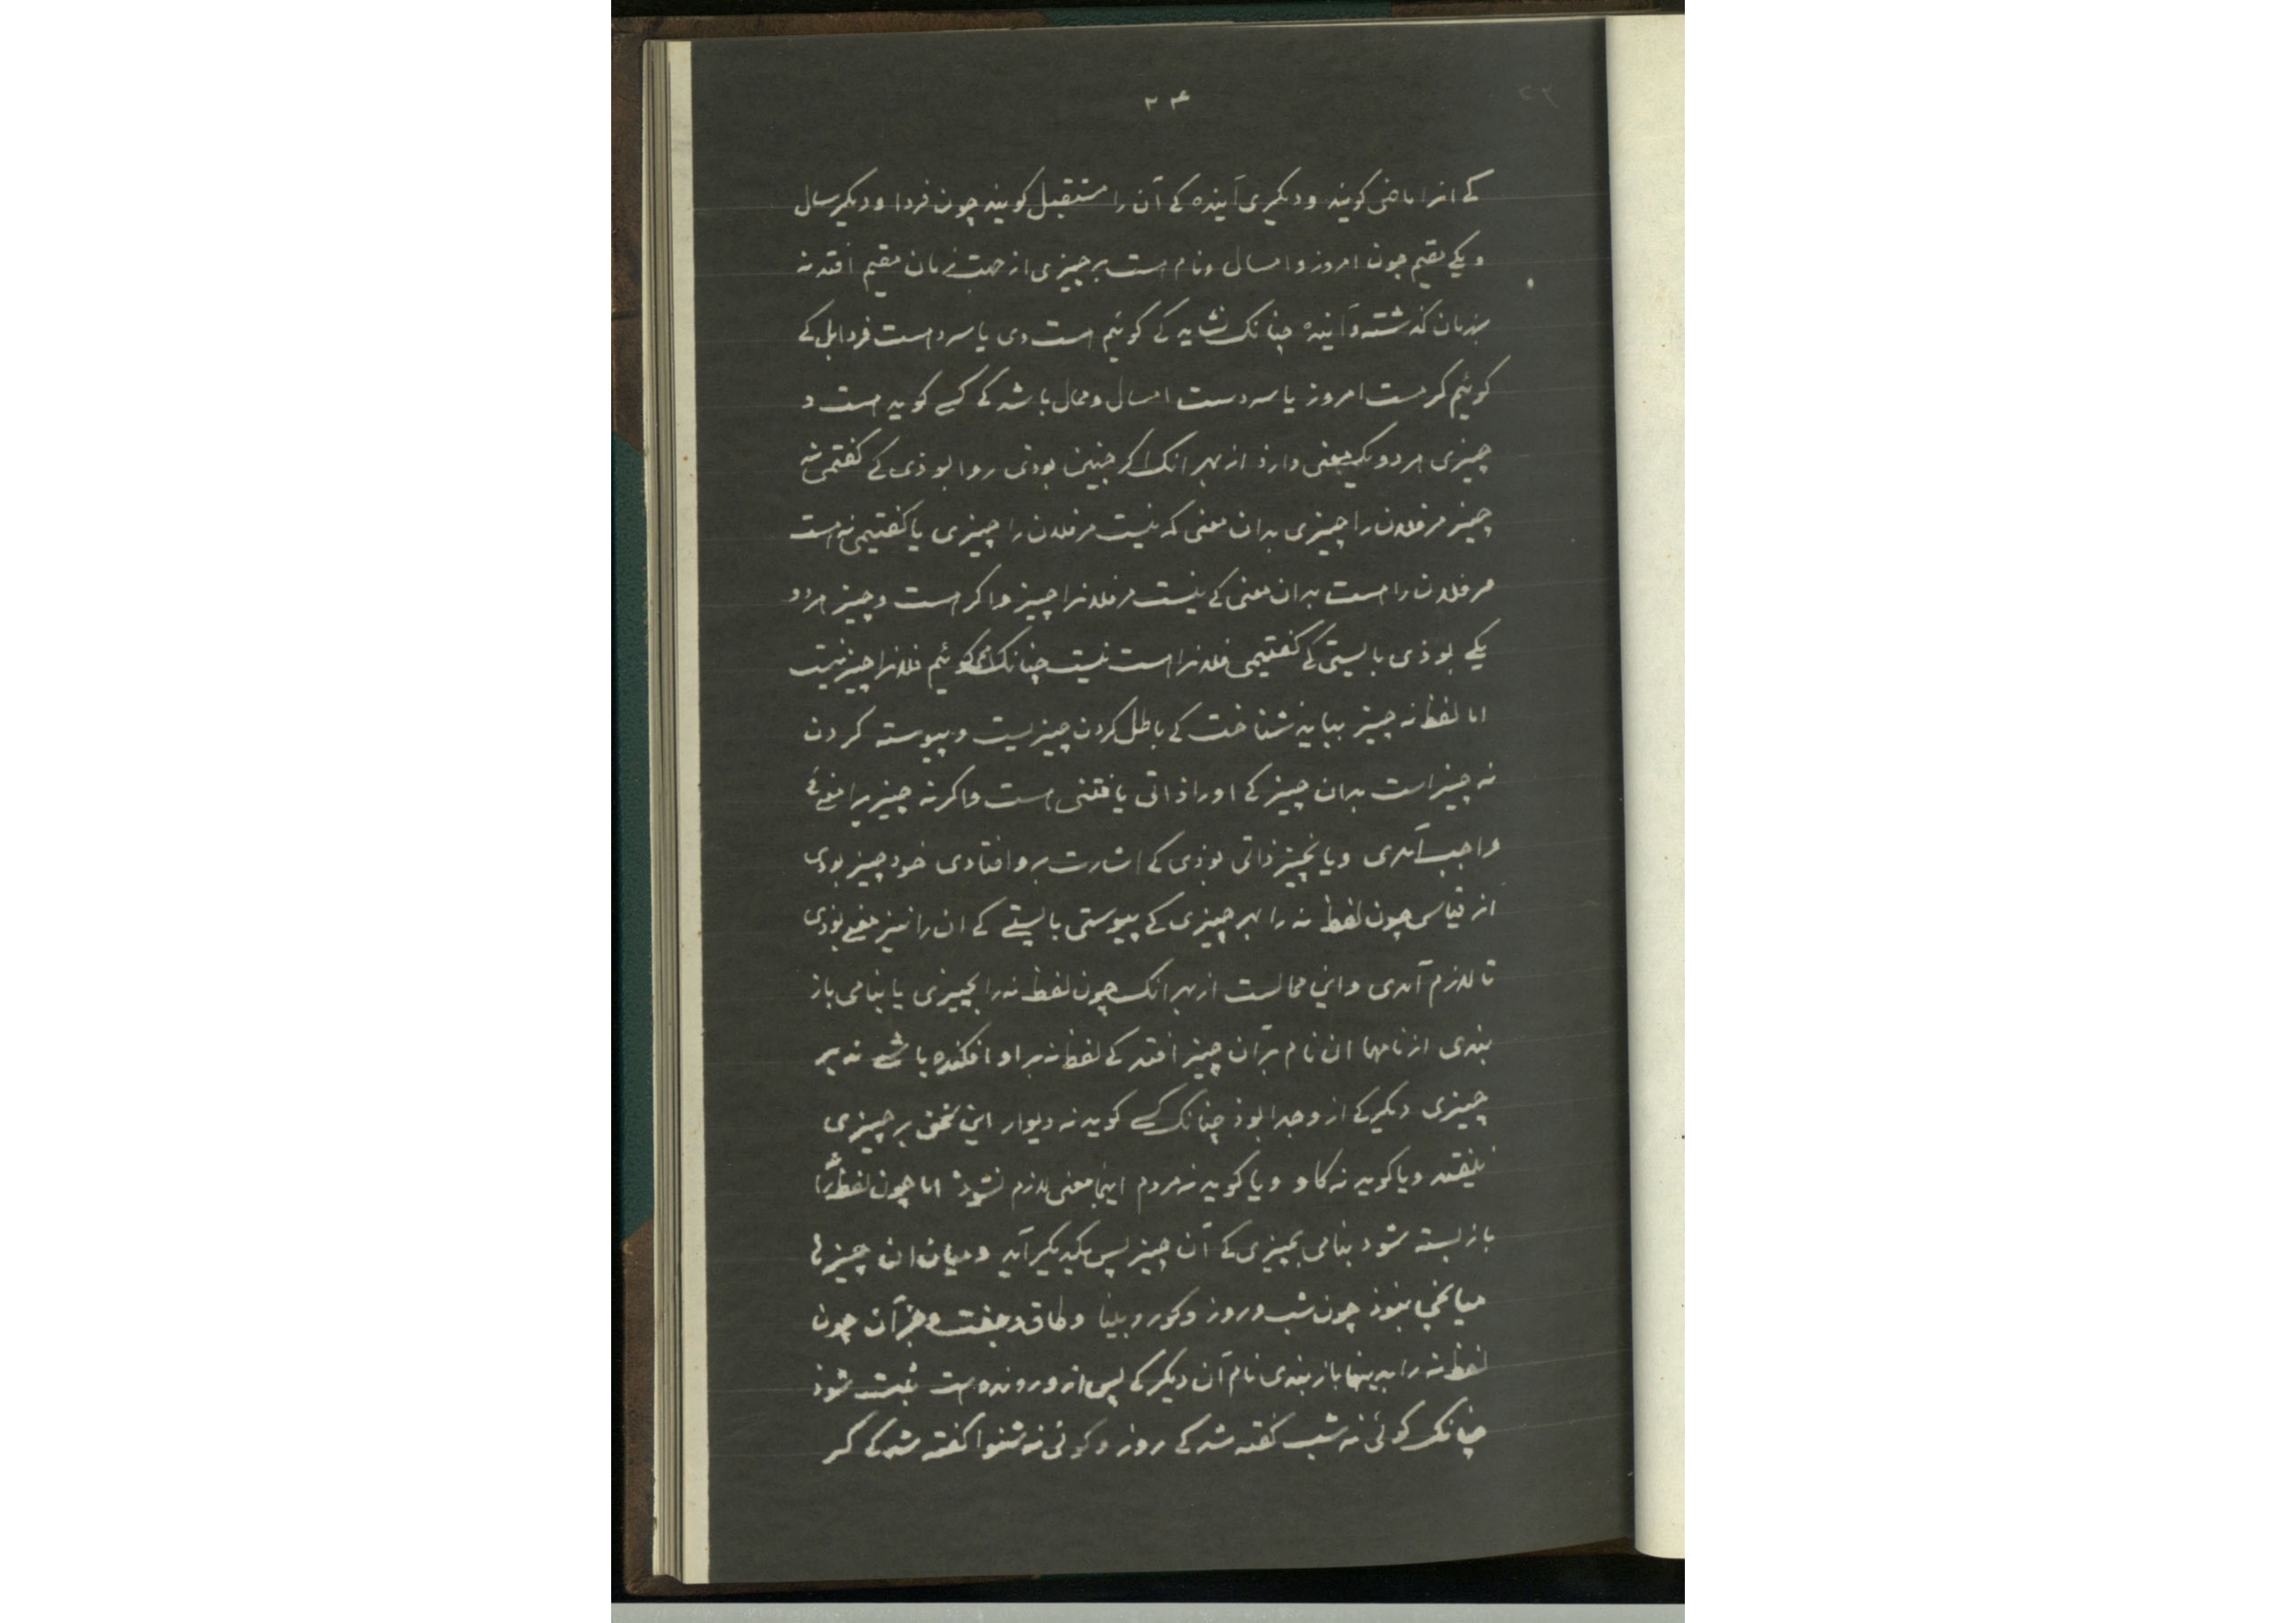 ۲۴
کے انرا ماضی کویند و دیکری آینده کے آن را مستقبل کویند چون فردا و دیکر سال
و یکے مقیم چون امروز و امسال و نام هست بر چیزی از جهت زمان مقیم افتد نه
بزمان کذشته و آینده چنانک نشاید کے کوئیم هست دی یا سردست فردا بل کے
کوئیم کرمست امروز یا سردست امسال و محال باشد کے کسے کوید هست و
چیزی هر دو یک معنی دارد از بهر انک اکر چنین بودی روا بوذی کے کفتمی نه
چیز مر فلان را چیزی بدان معنی که نیست مر فلان را چیزی یا کفتیمی نه هست
مر فلان را هست بدان معنی کے نیست مر فلانرا چیز و اکر هست و چیز هر دو
یکے بوذی بایستی کے کفتیمی فلانرا هست نیست چنانک می کوئیم فلانرا چیز نیست
اما لفظ نه چیز ببایذ شناخت کے باطل کردن چیزیست و پیوسته کردن
نه چیز است بدان چیز کے اورا ذاتی یافتنی هست و اکر نه چیز را معنئے
واجب آمدی و یا نچیز ذاتی بوذی کے اشارت برو افتادی خود چیز بودی
از قیاس چون لفظ نه را بهر چیزی کے پیوستی بایستے کے ان را نیز معنے بوذی
تا لازم آمدی و این محالست از بهر انک چون لفظ نه را بچیزی یا بنامی باز
بندی از نامها ان نام بر آن چیز افتد کے لفظ نه بر او افکنده باشے نه بر
چیزی دیکر کے از و جدا بوذ چنانک کسے کوید نه دیوار این سخن بر چیزی
نیفتد و یا کوید نه کاو و یا کوید نه مردم اینجا معنی لازم نشوذ اما چون لفظ نه را
باز بسته شود بنامی بچیزی کے آن چیز پس یکدیکر آید و میان ان چیزها
میانجی نبوذ چون شب و روز و کور و بینا و طاق و جفت و جز آن چون
لفظ نه را بدینها باز بندی نام آن دیکر کے پس از و رونده است ثبت شوذ
چنانک کوئی نه شب کفته شد کے روز و کوئی نه شنوا کفته شد کے کر